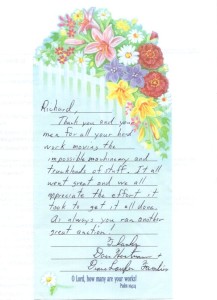 Richard,
Thank you and your
men for all your hard
work moving the
impossible machinery and
truckloads of stuff. It all
went great and we all
appreciate the effort it
took to get it all done.
As always you ran another
great auction!
Thanks,
Families
O Lord, how many are your works!
Psalm 104:24